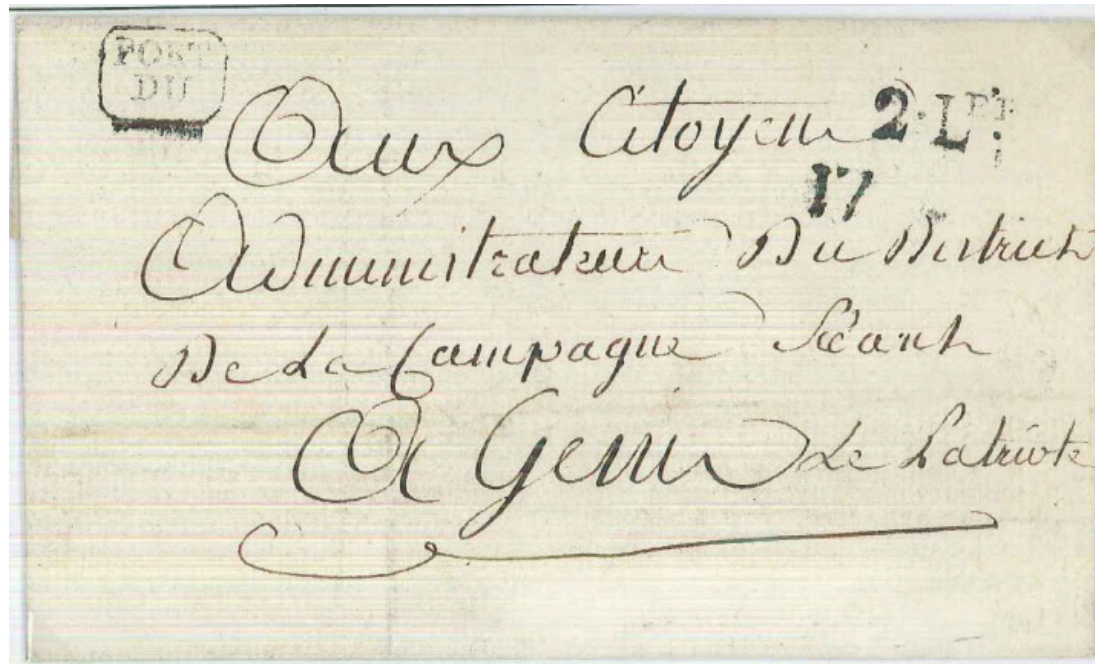 PORT
DU
Aux Citoyens
2
17
Administrateurs Du District
De La Campagne Séant
A Genis Le Patriote